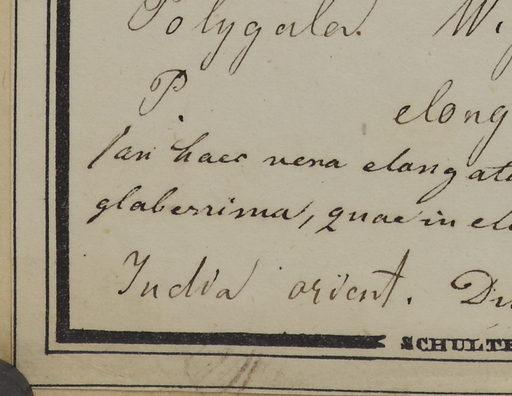 Polygala. W
P. elong
(an haec vera elongat
glaberrima, quae in el
India orient. D
SCHULT